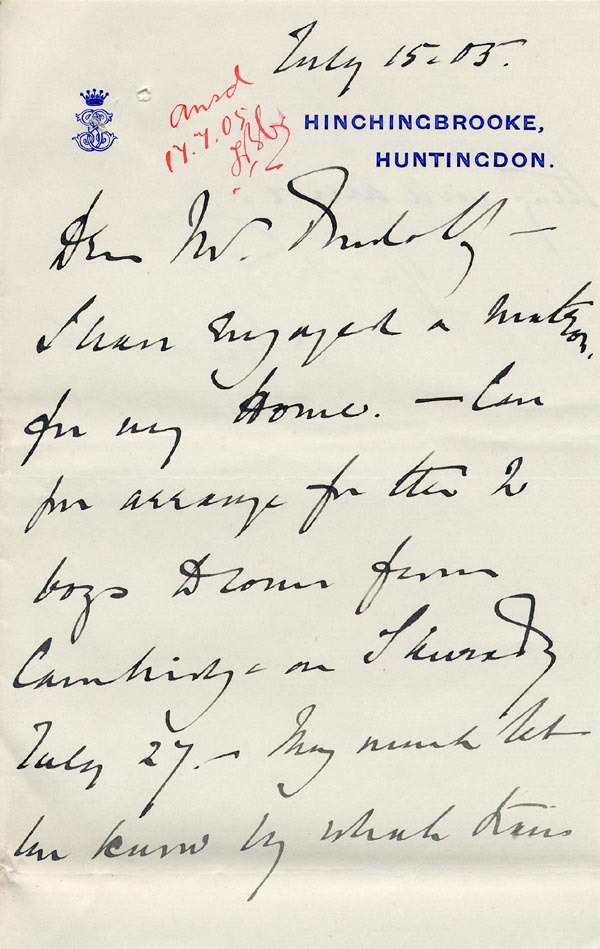 July 15. 05.
ansd
17.7.05
HINCHINGBROOKE,
HUNTINGDON.
Dear Mr. Rudolf –
I have engaged a matron
for my Home. – Can
you arrange for the 2
boys to come from
Cambridge on Thursday
July 27. – They must let
me know by what train